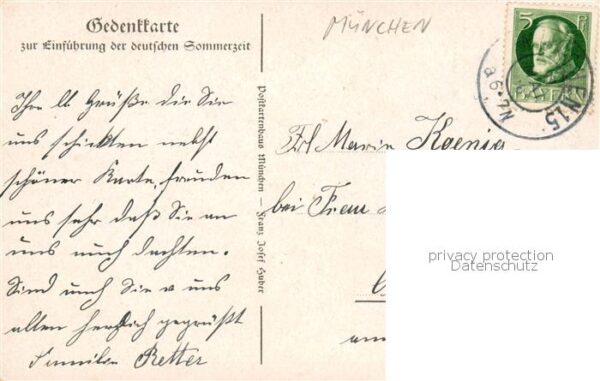 Gedenkkarte
zur Einführung der deutschen Sommerzeit
MÜNCHEN
5 Pf
BAYERN
EN 15
a 6-7 N
Ihre lb. Grüße die Sie
uns schickten nebst
schöner Karte, freuden
uns sehr daß Sie an
uns auch dachten.
Sind auch Sie v. uns
allen herzlich gegrüßt
Familie Retter
Postkartenhaus München — Franz Josef Huber
Frl Marie Koenig
bei Frau
am
privacy protection
Datenschutz